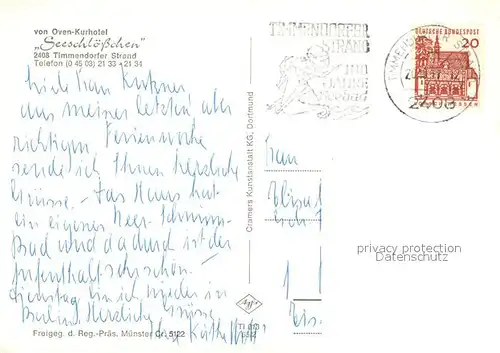 von Oven-Kurhotel
„Seeschlößchen"
2408 Timmendorfer Strand
Telefon (0 45 03) 21 33 + 21 34
Liebe Frau
aus meiner letzten aber
richtigen Ferienwoche
sende ich Ihnen herzliche
Grüsse. Das Haus hat
ein eigenes Meer-Schwimm-
Bad und dadurch ist der
Aufenthalt sehr schön.
Dienstag bin ich wieder in
Berlin. Herzliche Grüsse
Ihre Käthe
Freigeg. d. Reg.-Präs. Münster Cr. 5122
Cramers Kunstanstalt KG, Dortmund
TIMMENDORFER
STRAND
100
JAHRE
2408
DEUTSCHE BUNDESPOST
20
Frau
1
privacy protection
Datenschutz
Agfa